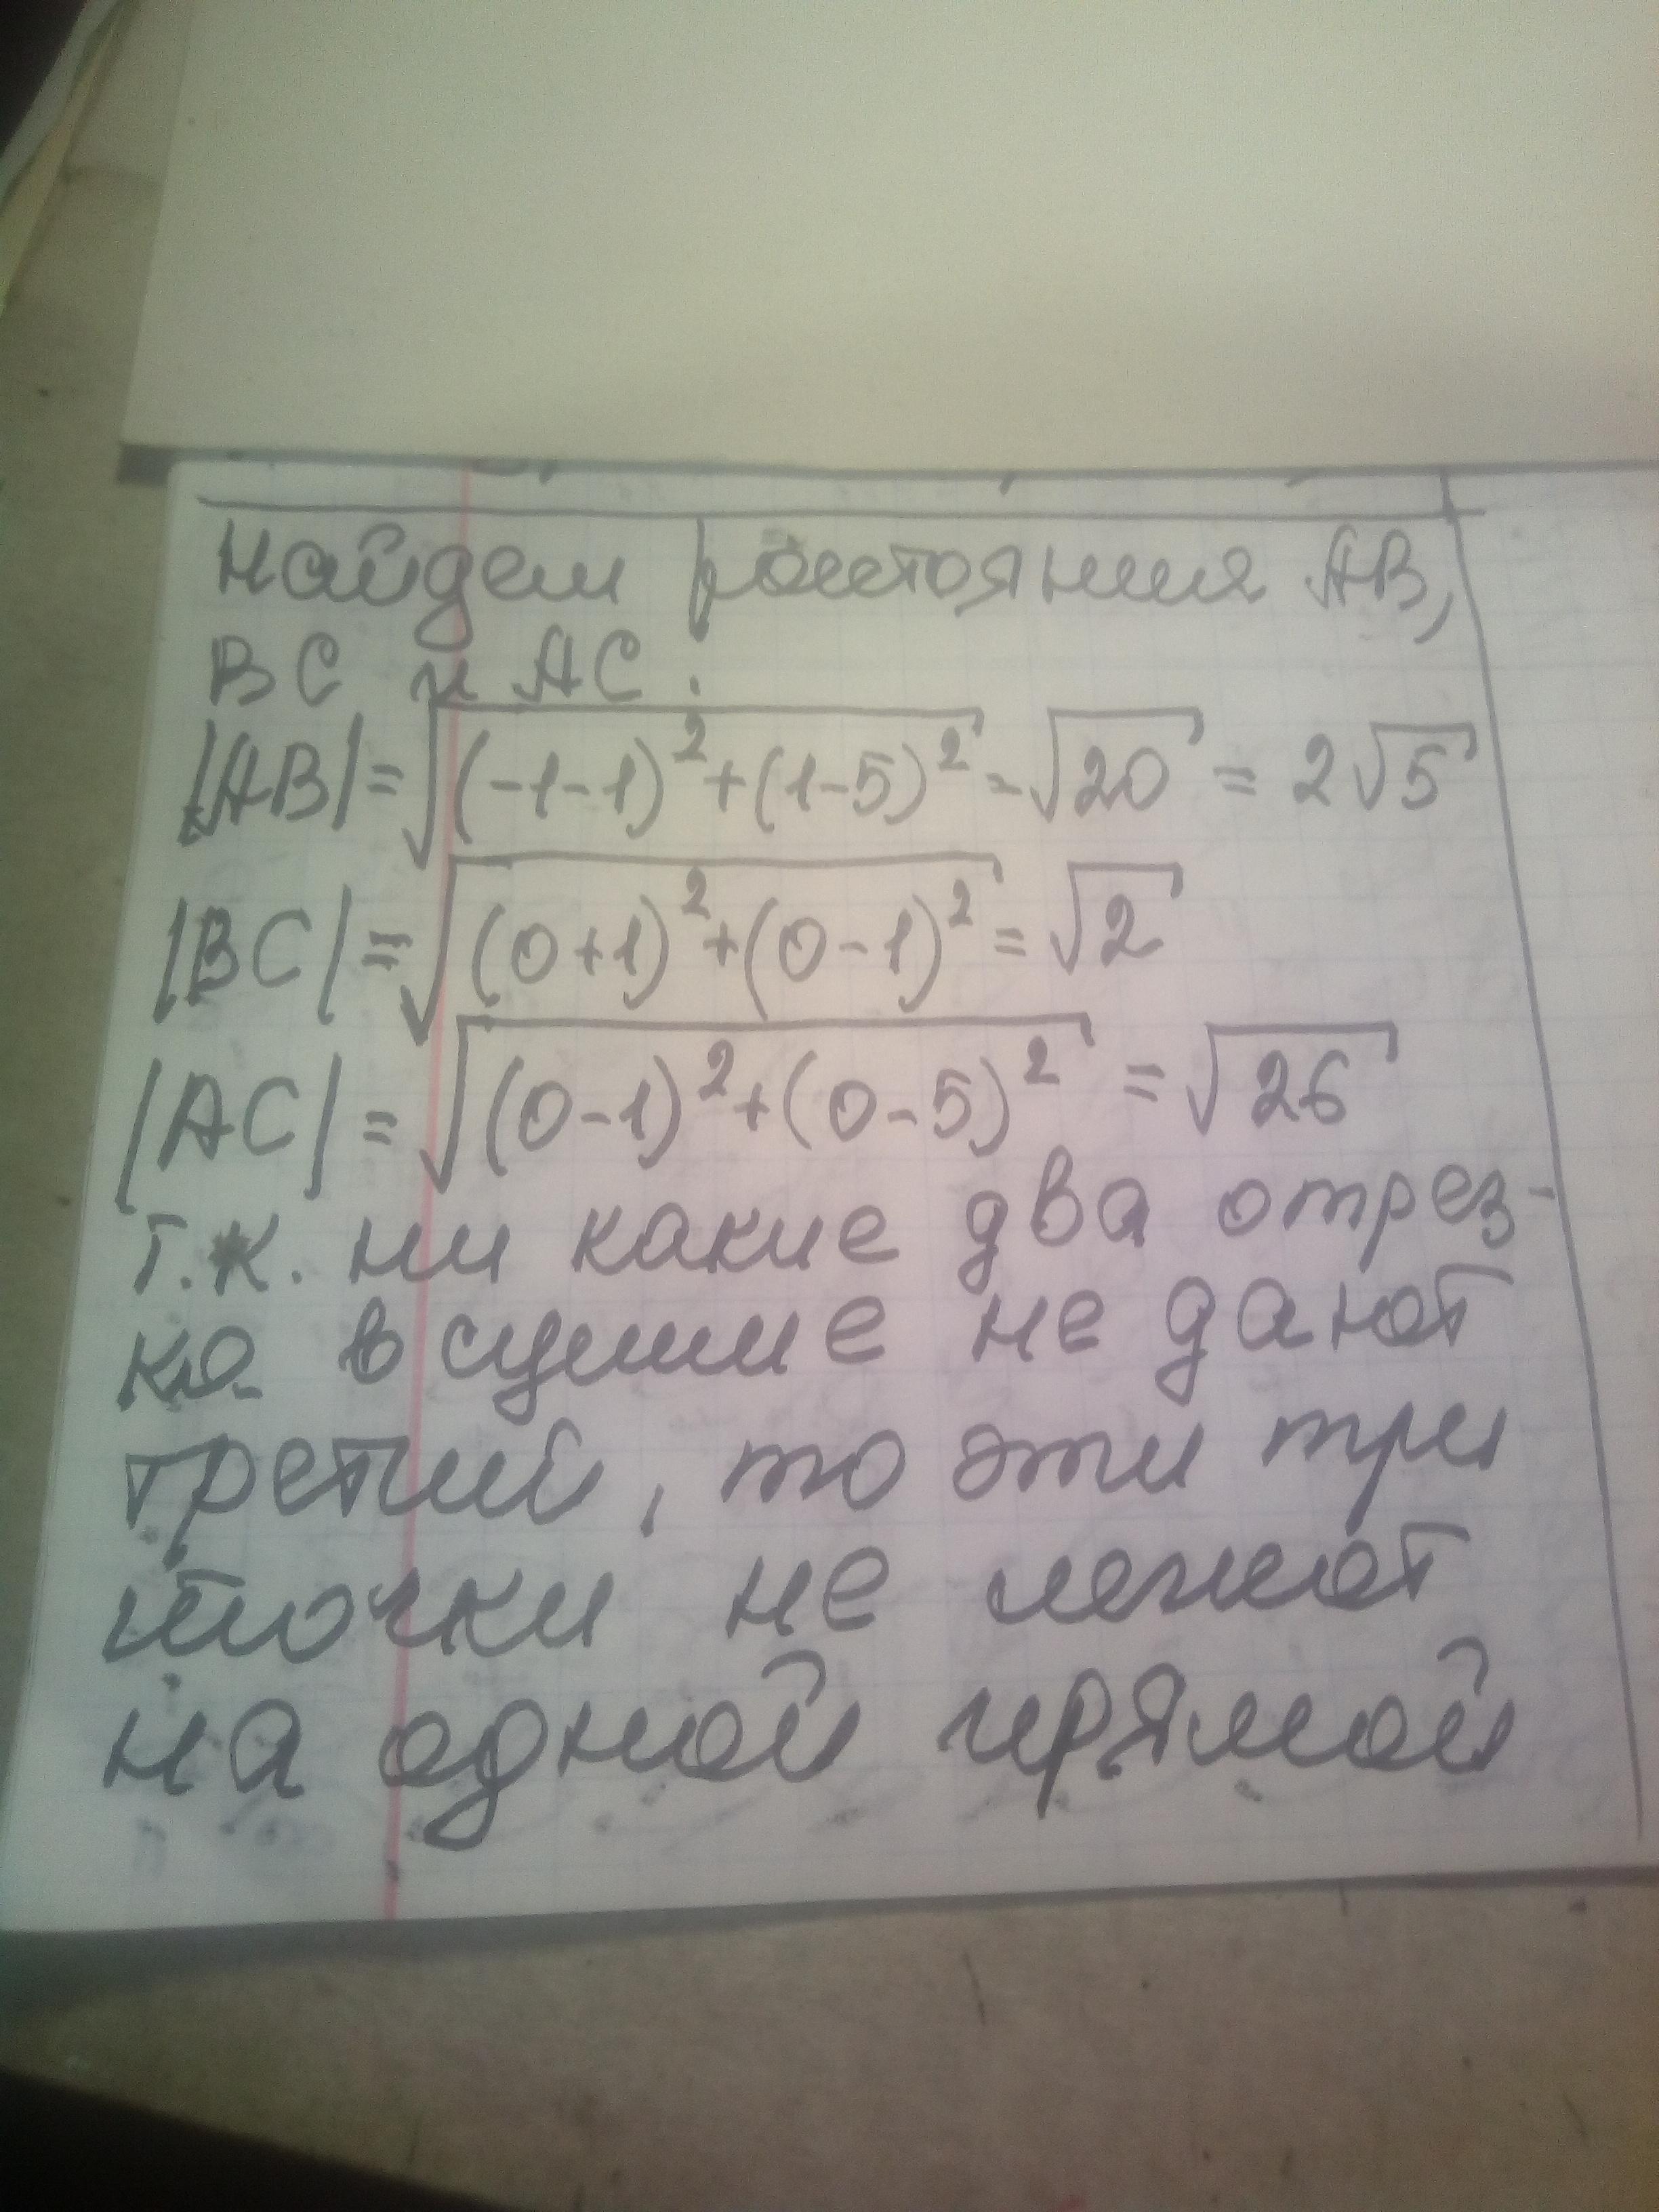 Найдем расстояния АВ,
ВС и АС:
|AB|=√(-1-1)²+(1-5)² = √20 = 2√5
|BC|=√(0+1)²+(0-1)² = √2
|AC|=√(0-1)²+(0-5)² = √26
т.к. ни какие два отрез-
ка в сумме не дают
третий, то эти три
точки не лежат
на одной прямой